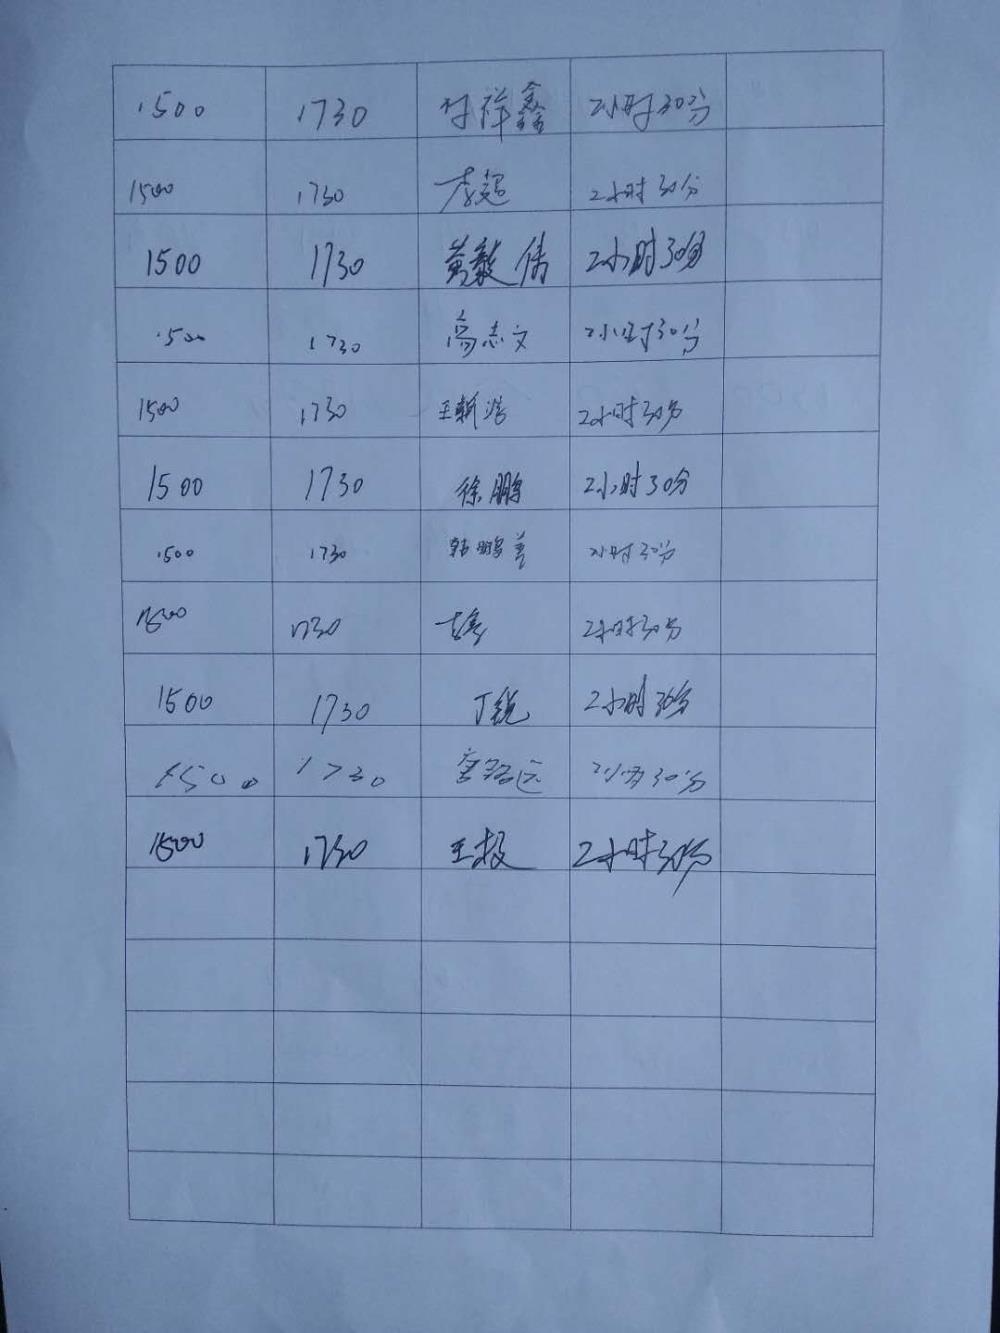 1500 1730 付祥鑫 2小时30分
1500 1730 李超 2小时30分
1500 1730 黄毅伟 2小时30分
1500 1730 高志文 2小时30分
1500 1730 王新浩 2小时30分
1500 1730 徐鹏 2小时30分
1500 1730 韩鹏 2小时30分
1500 1730 2小时30分
1500 1730 丁锐 2小时30分
1500 1730 2小时30分
1500 1730 王 2小时30分